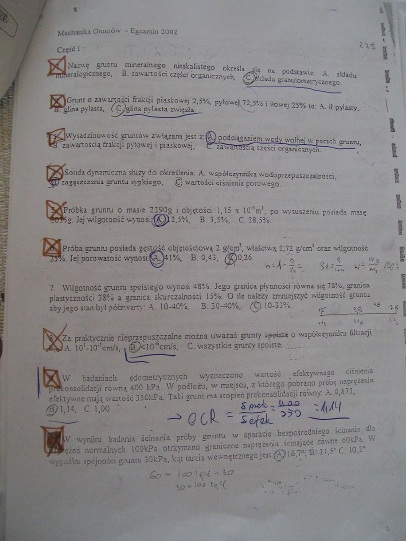 Mechanika Gruntów - Egzamin 2002
Część I
Nazwę gruntu mineralnego nieskalistego określa się na podstawie: A. składu
mineralogicznego, B. zawartości części organicznych, C. składu granulometrycznego.
Grunt o zawartości frakcji piaskowej 2,5%, pyłowej 72,5% i iłowej 25% to: A. ił pylasty,
B. glina pylasta, C. glina pylasta zwięzła
Wysadzinowość gruntów związana jest z: A. podciąganiem wody wolnej w porach gruntu,
B. zawartością frakcji pyłowej i piaskowej, C. zawartością części organicznych.
Sonda dynamiczna służy do określenia: A. współczynnika wodoprzepuszczalności,
B. zagęszczenia gruntu sypkiego, C. wartości ciśnienia porowego
Próbka gruntu o masie 2290g i objętości 1,15 x 10⁻³m³, po wysuszeniu posiada masę
2035g. Jej wilgotność wynosi: A. 12,5%, B. 3,5%, C. 28,5%
Próba gruntu posiada gęstość objętościową 2 g/cm³, właściwą 2,72 g/cm³ oraz wilgotność
Jej porowatość wynosi: A. 41%, B. 0,43, C. 0,26
7. Wilgotność gruntu spoistego wynosi 48%. Jego granica płynności równa się 78%, granica
plastyczności 38% a granica skurczalności 15%. O ile należy zmniejszyć wilgotność gruntu
aby jego stan był półzwarty: A. 10-40%, B. 30-40%, C. 10-33%
Za praktycznie nieprzepuszczalne można uważać grunty spoiste o współczynniku filtracji
A. cm/s, B. <10⁻⁸ cm/s, C. wszystkie grunty spoiste
W badaniach edometrycznych wyznaczono wartość efektywnego ciśnienia
prekonsolidacji równą 400 kPa. W podłożu, w miejscu, z którego pobrano próbę naprężenia
efektywne mają wartość 350kPa. Taki grunt ma stopień prekonsolidacji równy: A. 0,875,
B. 1,14, C. 1,00
→ OCR = = 400/350 = 1,14
W wyniku badania ścinania próby gruntu w aparacie bezpośredniego ścinania dla
naprężeń normalnych 100kPa otrzymano graniczne naprężenia ścinające równe 60kPa. W
wypadku spójności gruntu 30kPa, kąt tarcia wewnętrznego jest: A. 16,7°, B. 31,5° C. 10,2°